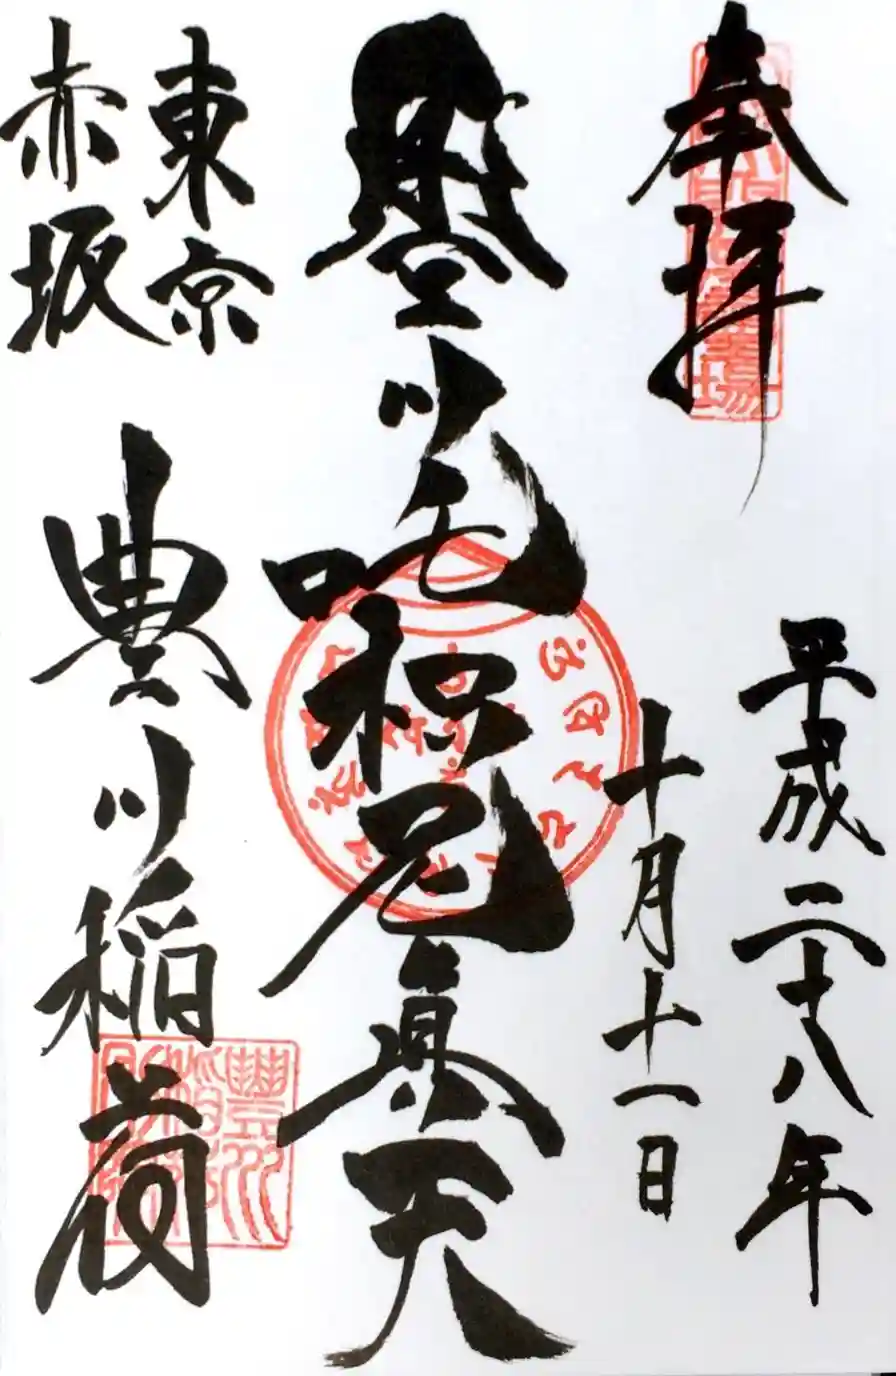 奉拝
平成二十八年
十月十一日
豊川吒枳尼眞天
東京
赤坂
豊川稲荷